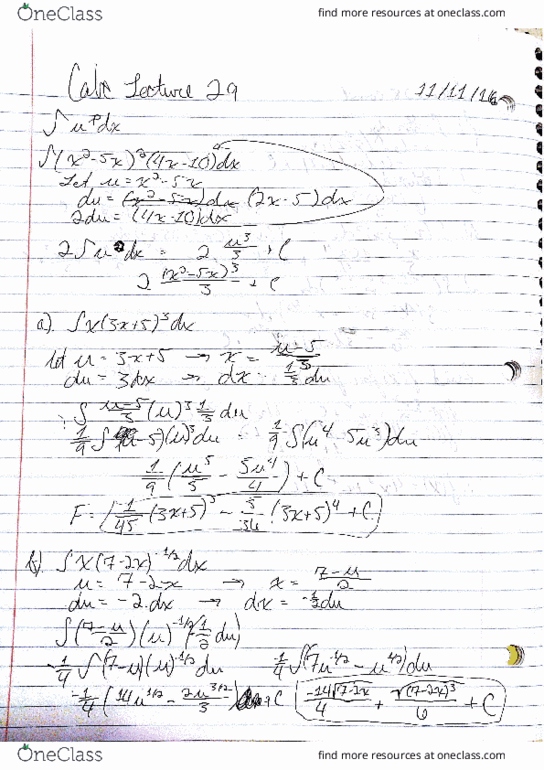 OneClass
find more resources at oneclass.com
Calc Lecture 29
11/11/16
∫ u^n dx
∫ (x²-5x)²(4x-10)dx
Let u = x²-5x
du = (2x-5)dx
2du = (4x-10)dx
2∫u²dx = 2 u³/3 + C
2 (x²-5x)³/3 + C
a). ∫x(3x+5)³dx
let u = 3x+5 → x = (u-5)/3
du = 3dx → dx = 1/3 du
∫ (u-5)/3 (u)³ 1/3 du
1/9 ∫(u-5)(u)³du = 1/9 ∫(u⁴ - 5u³)du
1/9 (u⁵/5 - 5u⁴/4) + C
F = 1/45 (3x+5)⁵ - 5/36 (3x+5)⁴ + C
b). ∫x(7-2x)^-1/2 dx
u = 7-2x → x = (7-u)/2
du = -2dx → dx = -1/2 du
∫((7-u)/2)(u)^-1/2 (-1/2 du)
-1/4 ∫(7-u)(u)^-1/2 du -1/4 ∫(7u^-1/2 - u^1/2)du
-1/4 (14u^1/2 - 2u^3/2 /3) + C -14√(7-2x)/4 + √(7-2x)³/6 + C
OneClass
find more resources at oneclass.com